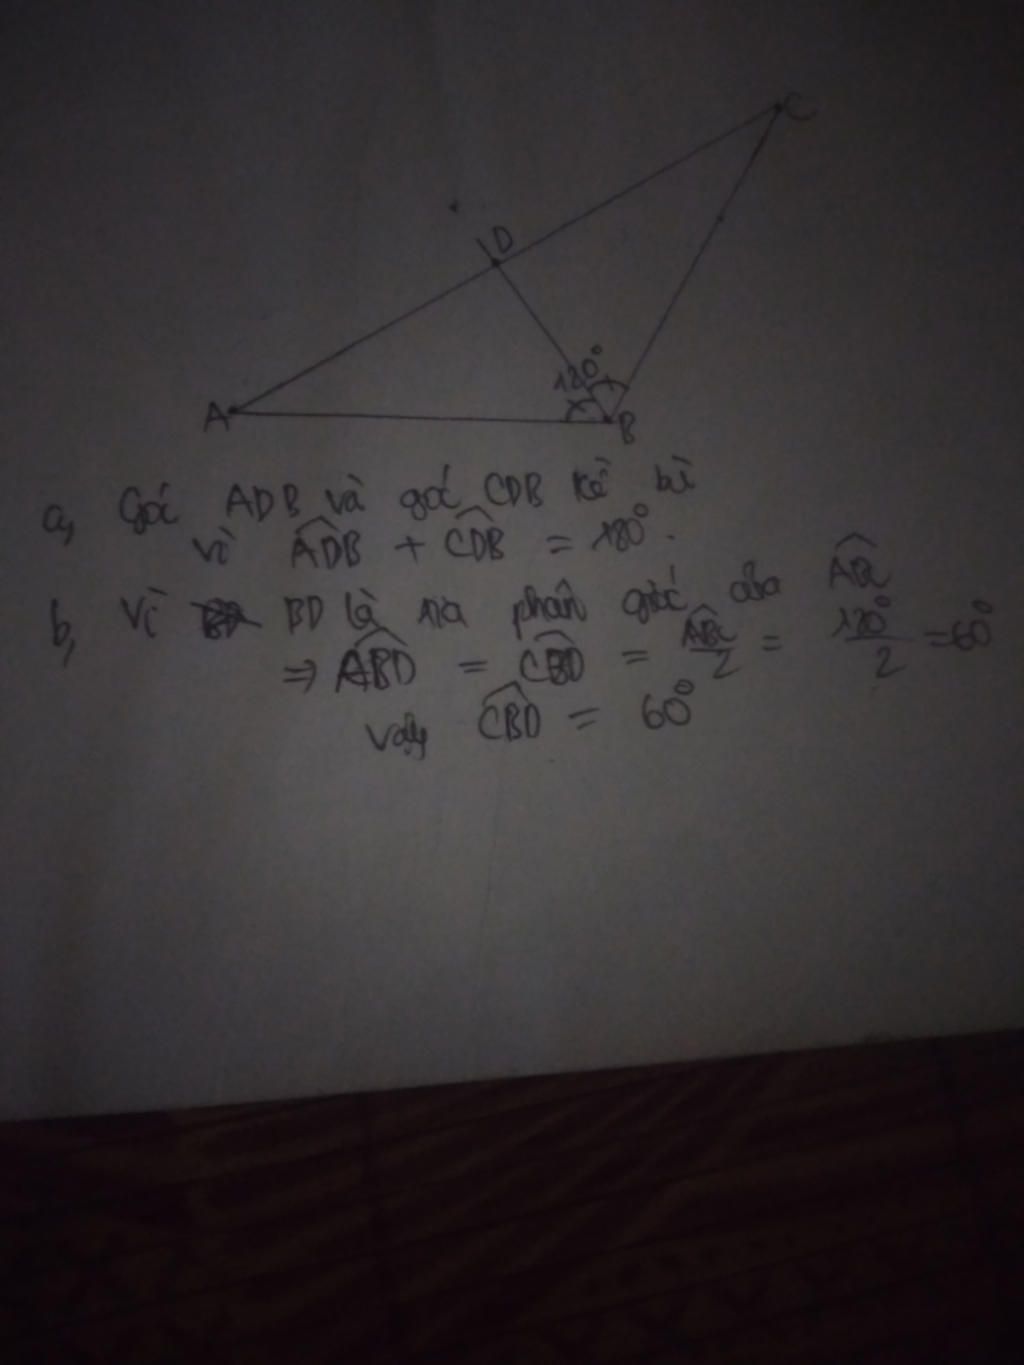 C
D
120°
A
B
a, Góc ADB và góc CDB kề bì
vì ADB + CDB = 180°.
b, Vì BD là tia phân giác của ABC
⇒ ABD = CBD = ABC/2 = 120°/2 = 60°
Vậy CBD = 60°